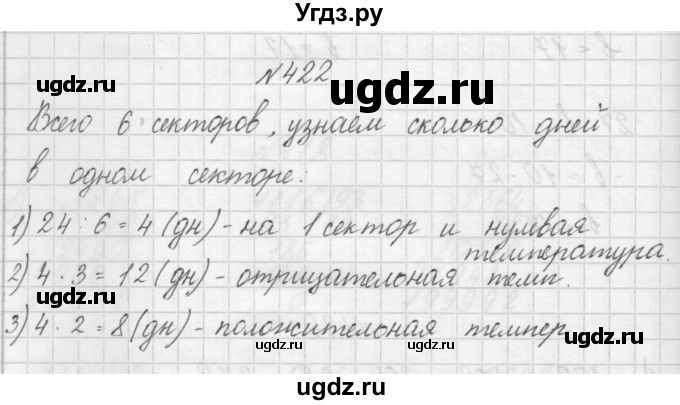 Угдз.ру
№422
Всего 6 секторов, узнаем сколько дней
в одном секторе:
1) 24 : 6 = 4 (дн) - на 1 сектор и нулевая
температура.
2) 4 · 3 = 12 (дн) - отрицательная темп.
3) 4 · 2 = 8 (дн) - положительная темпер.
ugdz.ru
ugdz.ru
ugdz.ru
ugdz.ru
ugdz.ru
ugdz.ru
ugdz.ru
ugdz.ru
ugdz.ru